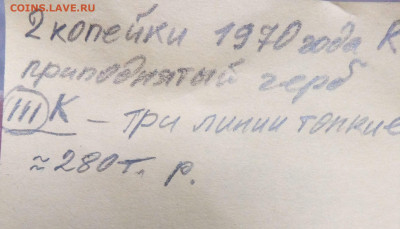 COINS.LAVE.RU
2 копейки 1970 года К
приподнятый герб
III К – три линии тонкие
≈ 280 т. р.